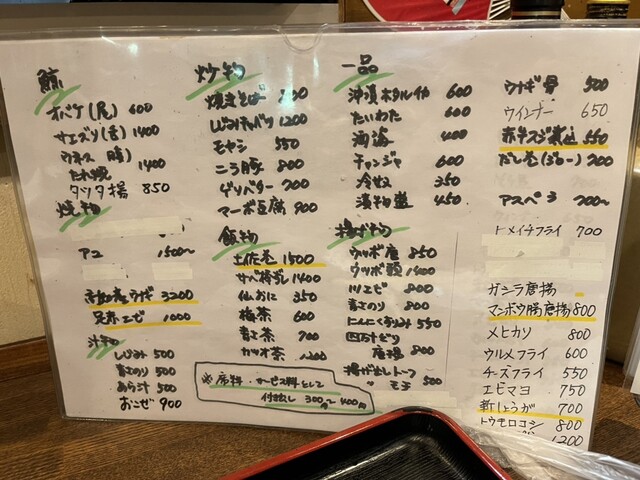 鯨
オバケ(尾) 600
サエズリ(舌) 1400
ウネス
たれ焼 1400
タツタ揚 850
焼物
アユ 1500〜
1000
汁物
しじみ 500
青さのり 500
あら汁 500
おこぜ 900
炒め物
焼きそば
1200
モヤシ 550
ニラ豚 800
マーボ豆腐 900
飯物
土佐巻 1500
サバ棒ずし 1400
仙おに 350
梅茶 600
青さ茶 700
カツオ茶 1200
※席料・サービス料として
付出し 300円〜400円
一品
沖漬ホタルイカ 600
たいわた 600
酒盗 400
チャンジャ 600
冷奴 350
漬物盛 450
揚げ物
ウツボ唐 850
ウツボ頭 1400
川エビ 800
青さのり 800
550
四万十どり
唐揚 800
揚げ出しトーフ
〃 モチ 500
ウナギ骨 500
ウインナー 650
赤牛スジ煮込 550
だし巻 700
アスパラ 700〜
トメイチフライ 700
ガシラ唐揚
マンボウ腸唐揚 800
メヒカリ 800
ウルメフライ 600
チーズフライ 550
エビマヨ 750
新しょうが 700
トウモロコシ 800
1200